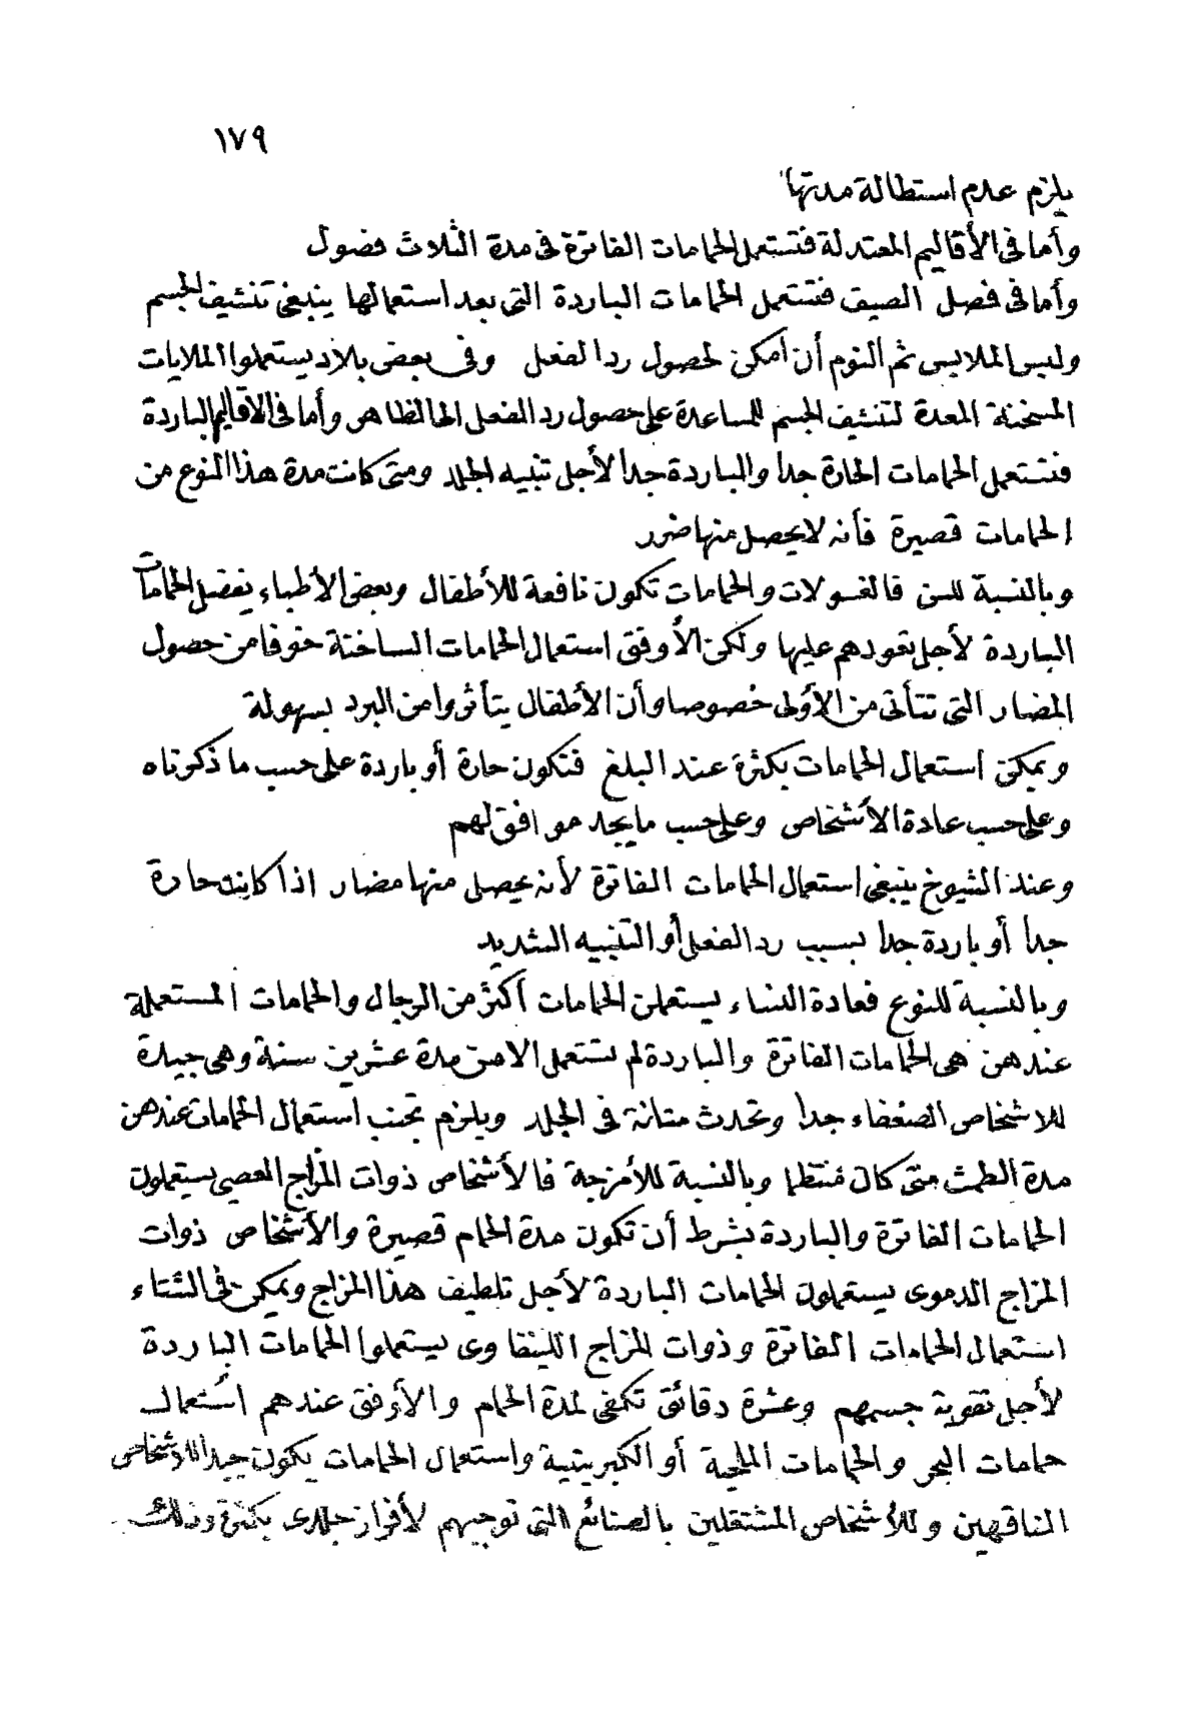 ١٧٩
يلزم عدم استطالة مدتها
وأما فى الأقاليم المعتدلة فتستعمل الحمامات الفاترة فى مدة الثلاث فصول
وأما فى فصل الصيف فتستعمل الحمامات الباردة التى بعد استعمالها ينبغى تنشيف الجسم
ولبس الملابس ثم النوم أن امكن لحصول رد الفعل وفى بعض بلاد يستعملوا الملايات
المسخنة المعدة لتنشيف الجسم للمساعدة على حصول رد الفعل الى الظاهر وأما فى الاقاليم الباردة
فتستعمل الحمامات الحارة جدا والباردة جدا لأجل تنبيه الجلد ومتى كانت مدة هذا النوع من
الحمامات قصيرة فأنه لا يحصل منها ضرر
وبالنسبة للسن فالغسولات والحمامات تكون نافعة للأطفال وبعض الأطباء يفضل الحمامات
الباردة لأجل تعودهم عليها ولكن الأوفق استعمال الحمامات الساخنة خوفا من حصول
المضار التى تتأتى من الأولى خصوصا وأن الأطفال يتأثروا من البرد بسهولة
ويمكن استعمال الحمامات بكثرة عند البلغ فتكون حارة أو باردة على حسب ما ذكرناه
وعلى حسب عادة الأشخاص وعلى حسب ما يجد موافق لهم
وعند الشيوخ ينبغى استعمال الحمامات الفاترة لأنه يحصل منها مضار اذا كانت حارة
جدا أو باردة جدا بسبب رد الفعل أو التنبيه الشديد
وبالنسبة للنوع فعادة النساء يستعملن الحمامات أكثر من الرجال والحمامات المستعملة
عندهن هى الحمامات الفاترة والباردة لم تستعمل الا من مدة عشرين سنة وهى جيدة
للاشخاص الضعفاء جدا وتحدث متانة فى الجلد ويلزم تجنب استعمال الحمامات عندهن
مدة الطمث متى كان منتظما وبالنسبة للأمزجة فالأشخاص ذوات المزاج العصبى يستعملون
الحمامات الفاترة والباردة بشرط أن تكون مدة الحمام قصيرة والأشخاص ذوات
المزاج الدموى يستعملون الحمامات الباردة لأجل تلطيف هذا المزاج ويمكن فى الشتاء
استعمال الحمامات الفاترة وذوات المزاج اللينفاوى يستعملوا الحمامات الباردة
لأجل تقوية جسمهم وعشرة دقائق تكفى لمدة الحمام والأوفق عندهم استعمال
حمامات البحر والحمامات الملحية أو الكبريتية واستعمال الحمامات يكون جيدا للأشخاص
الناقهين وللأشخاص المشتغلين بالصنائع التى توجبهم لأفراز جلدى بكثرة وذلك